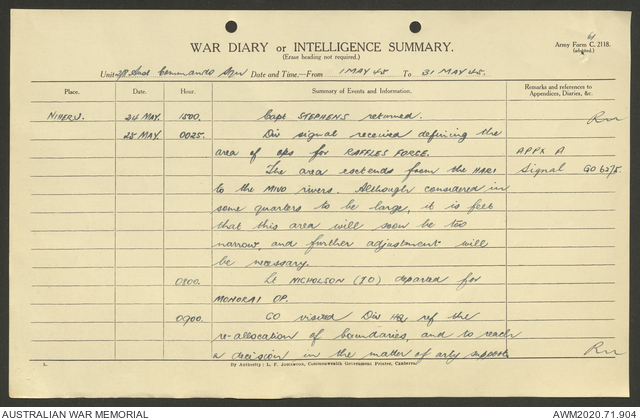 WAR DIARY or INTELLIGENCE SUMMARY.
(Erase heading not required.)
Army Form C. 2118.
(adapted.)
Unit Commando Date and Time.—From 1 MAY 45 To 31 MAY 45.
Place. Date. Hour. Summary of Events and Information. Remarks and references to
Appendices, Diaries, &c.
24 MAY. 1500. Capt STEPHENS returned.
25 MAY. 0025. Div signal received defining the
area of ops for RAFFLES FORCE. APPX A
The area extends from the HARI Signal GO 6275
to the MIVO rivers. Although considered in
some quarters to be large, it is felt
that this area will soon be too
narrow, and further adjustment will
be necessary.
0800. Lt NICHOLSON (IO) departed for
MONORAI OP.
0900. CO visited Div HQ ref the
re-allocation of boundaries, and to reach
a decision in the matter of arty support
By Authority: L. F. JOHNSTON, Commonwealth Government Printer, Canberra.
AUSTRALIAN WAR MEMORIAL
AWM2020.71.904